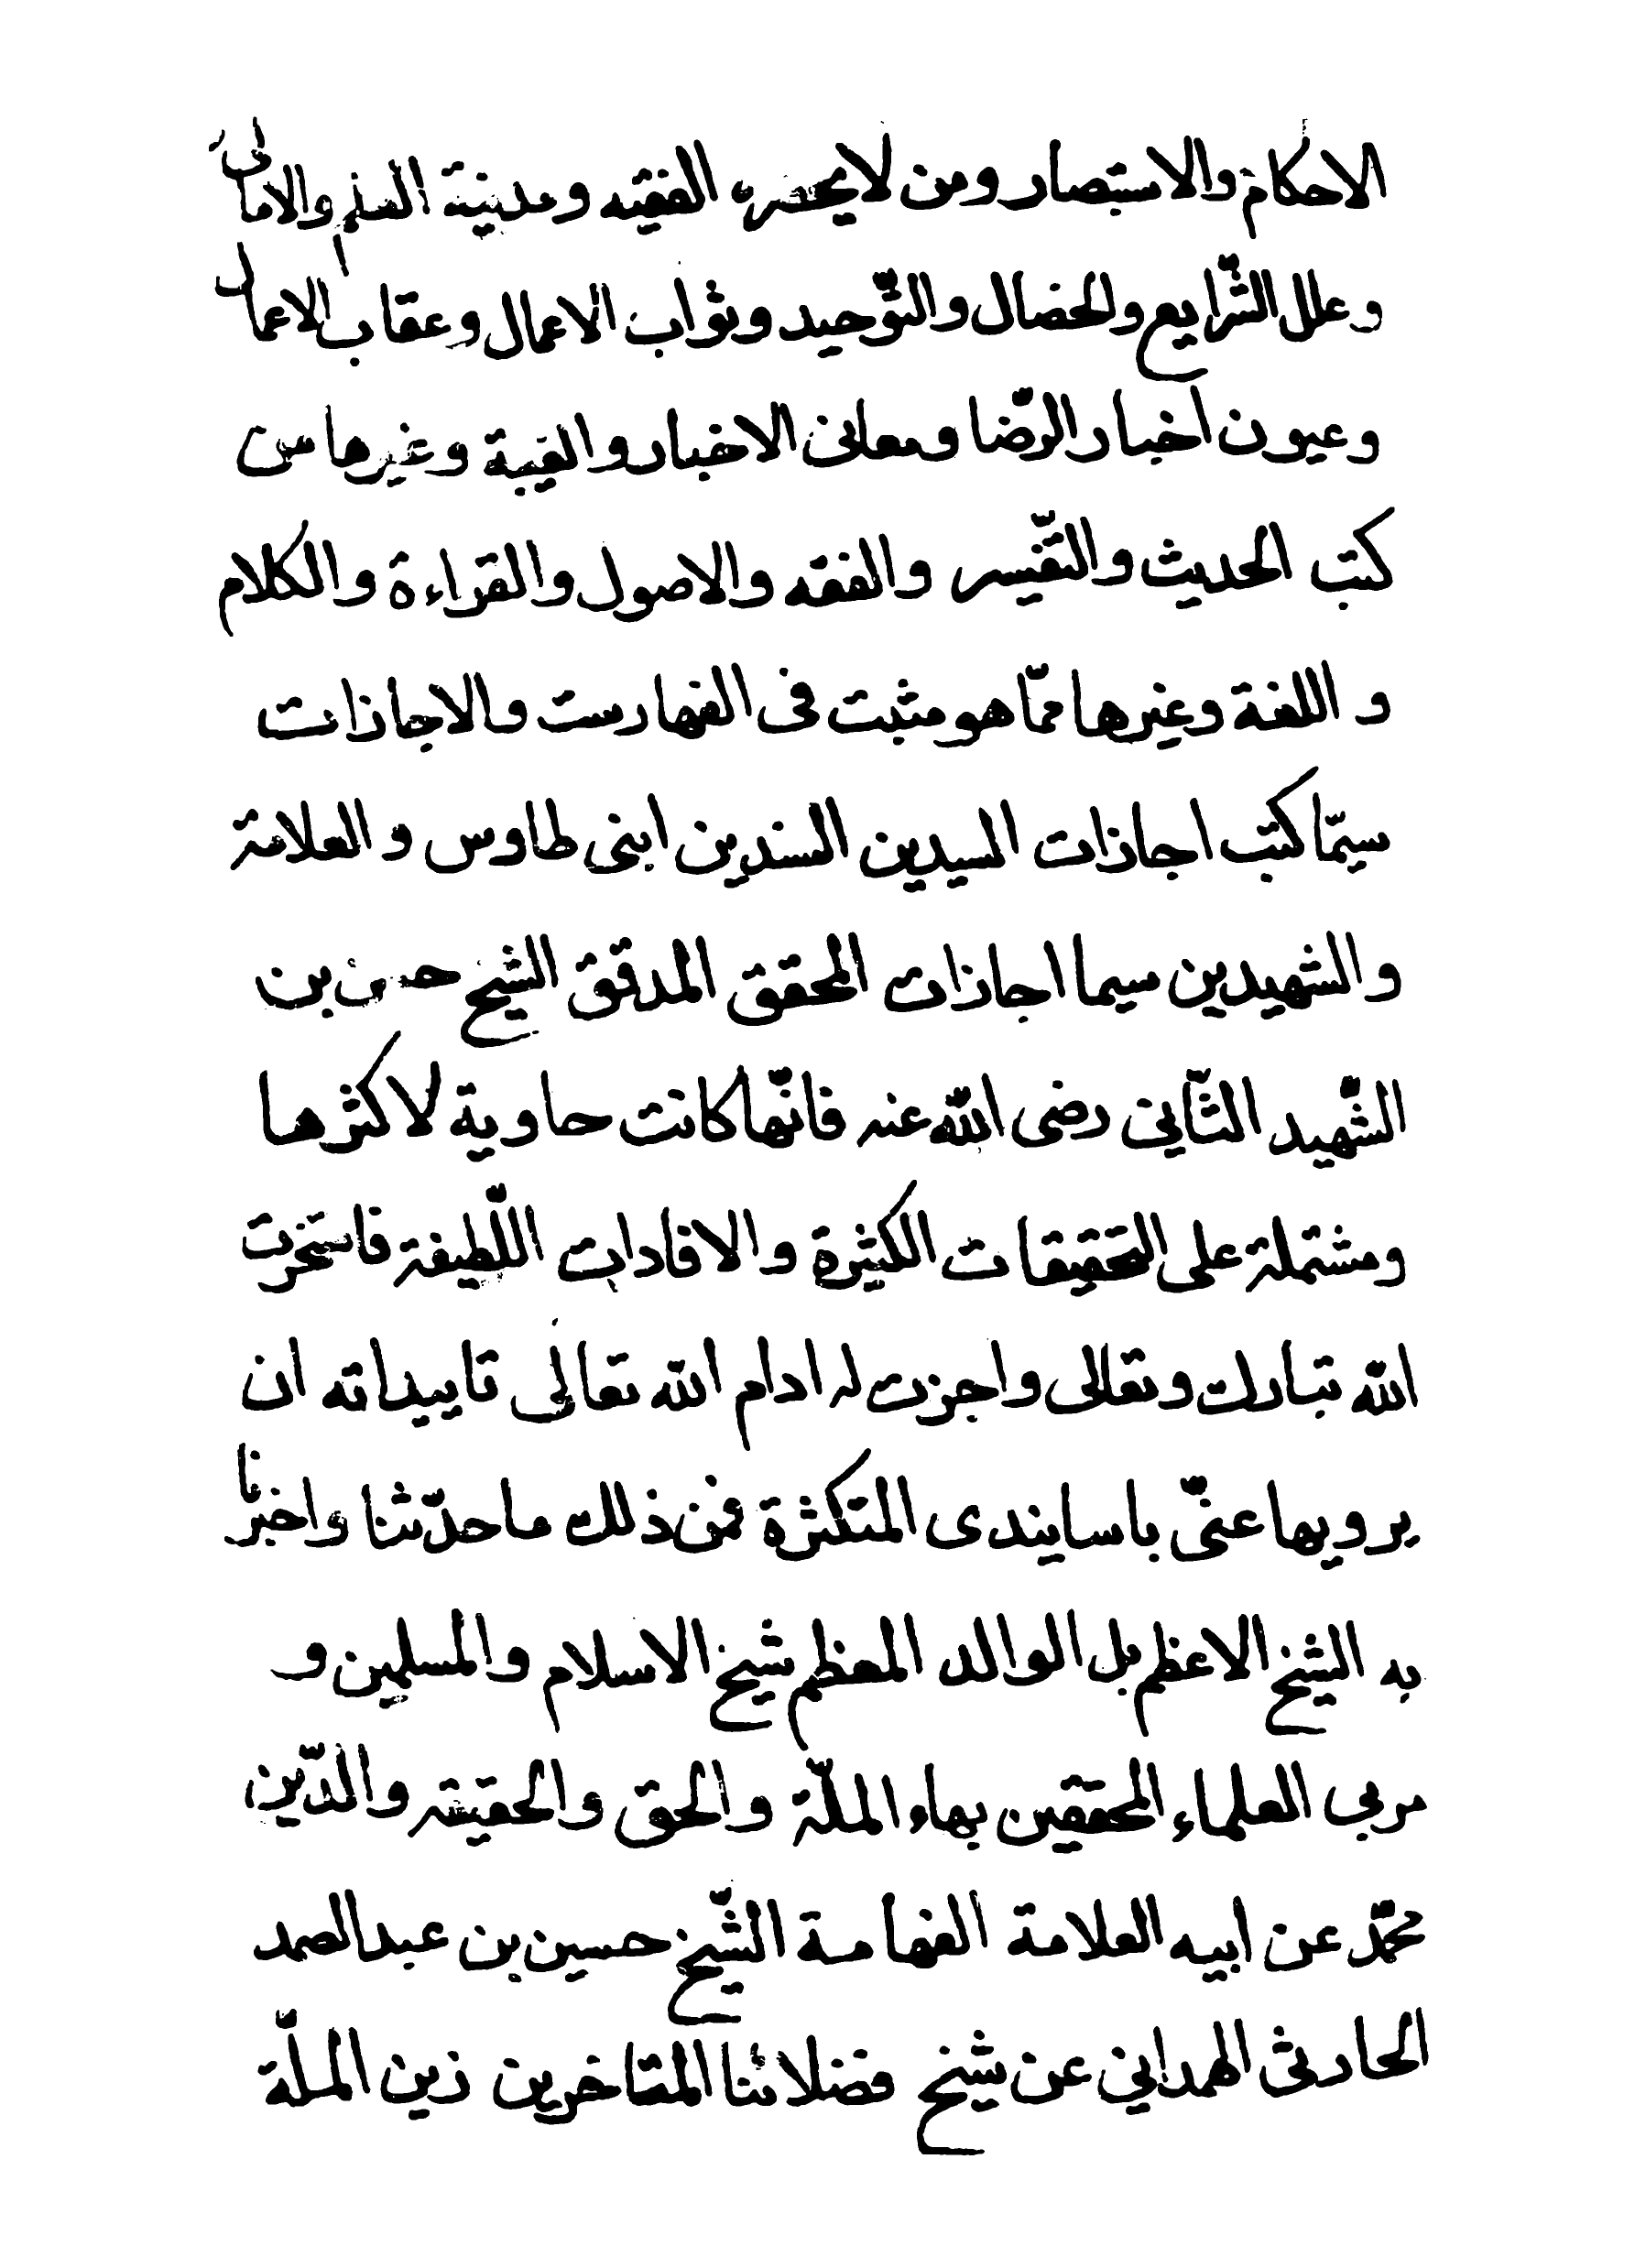 الاحكام والاستبصار ومن لا يحضره الفقيه ومدينة العلم والامالى
وعلل الشّرايع والخصال والتّوحيد وثواب الاعمال وعقاب الاعمال
وعيون اخبار الرّضا ومعانى الاخبار والغيبة وغيرها من
كتب الحديث والتّفسير والفقه والاصول والقراءة والكلام
واللغة وغيرها ممّا هو مثبت فى الفهارست والاجازات
سيّما كتب اجازات السيدين السندين ابنى طاوس والعلامة
والشهيدين سيما اجازات المحقق المدقق الشيخ حسن بن
الشّهيد الثّانى رضى الله عنه فانّها كانت حاوية لاكثرها
ومشتملة على التحقيقات الكثيرة والافادات اللّطيفة فاستخرت
الله تبارك وتعالى واجزت له ادام الله تعالى تاييداته ان
يرويها عنّى باسانيدى المتكثرة فمن ذلك ما حدّثنا واخبرنا
به الشيخ الاعظم بل الوالد المعظم شيخ الاسلام والمسلمين و
مربى العلماء المحققين بهاء الملّة والحق والحقيقة والدّين
محمّد عن ابيه العلامة الفهامة الشّيخ حسين بن عبد الصمد
الحارثى الهمدانى عن شيخ فضلائنا المتاخرين زين الملّة